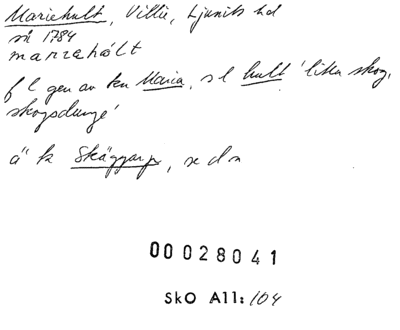 Mariehult, Villie, Ljunits hd
sk 1784
marıəhə́lt
f l gen av kn Maria, s l hult 'liten skog,
skogsdunge'
å k Skäggarp, se d n
00028041
SkO All: 104